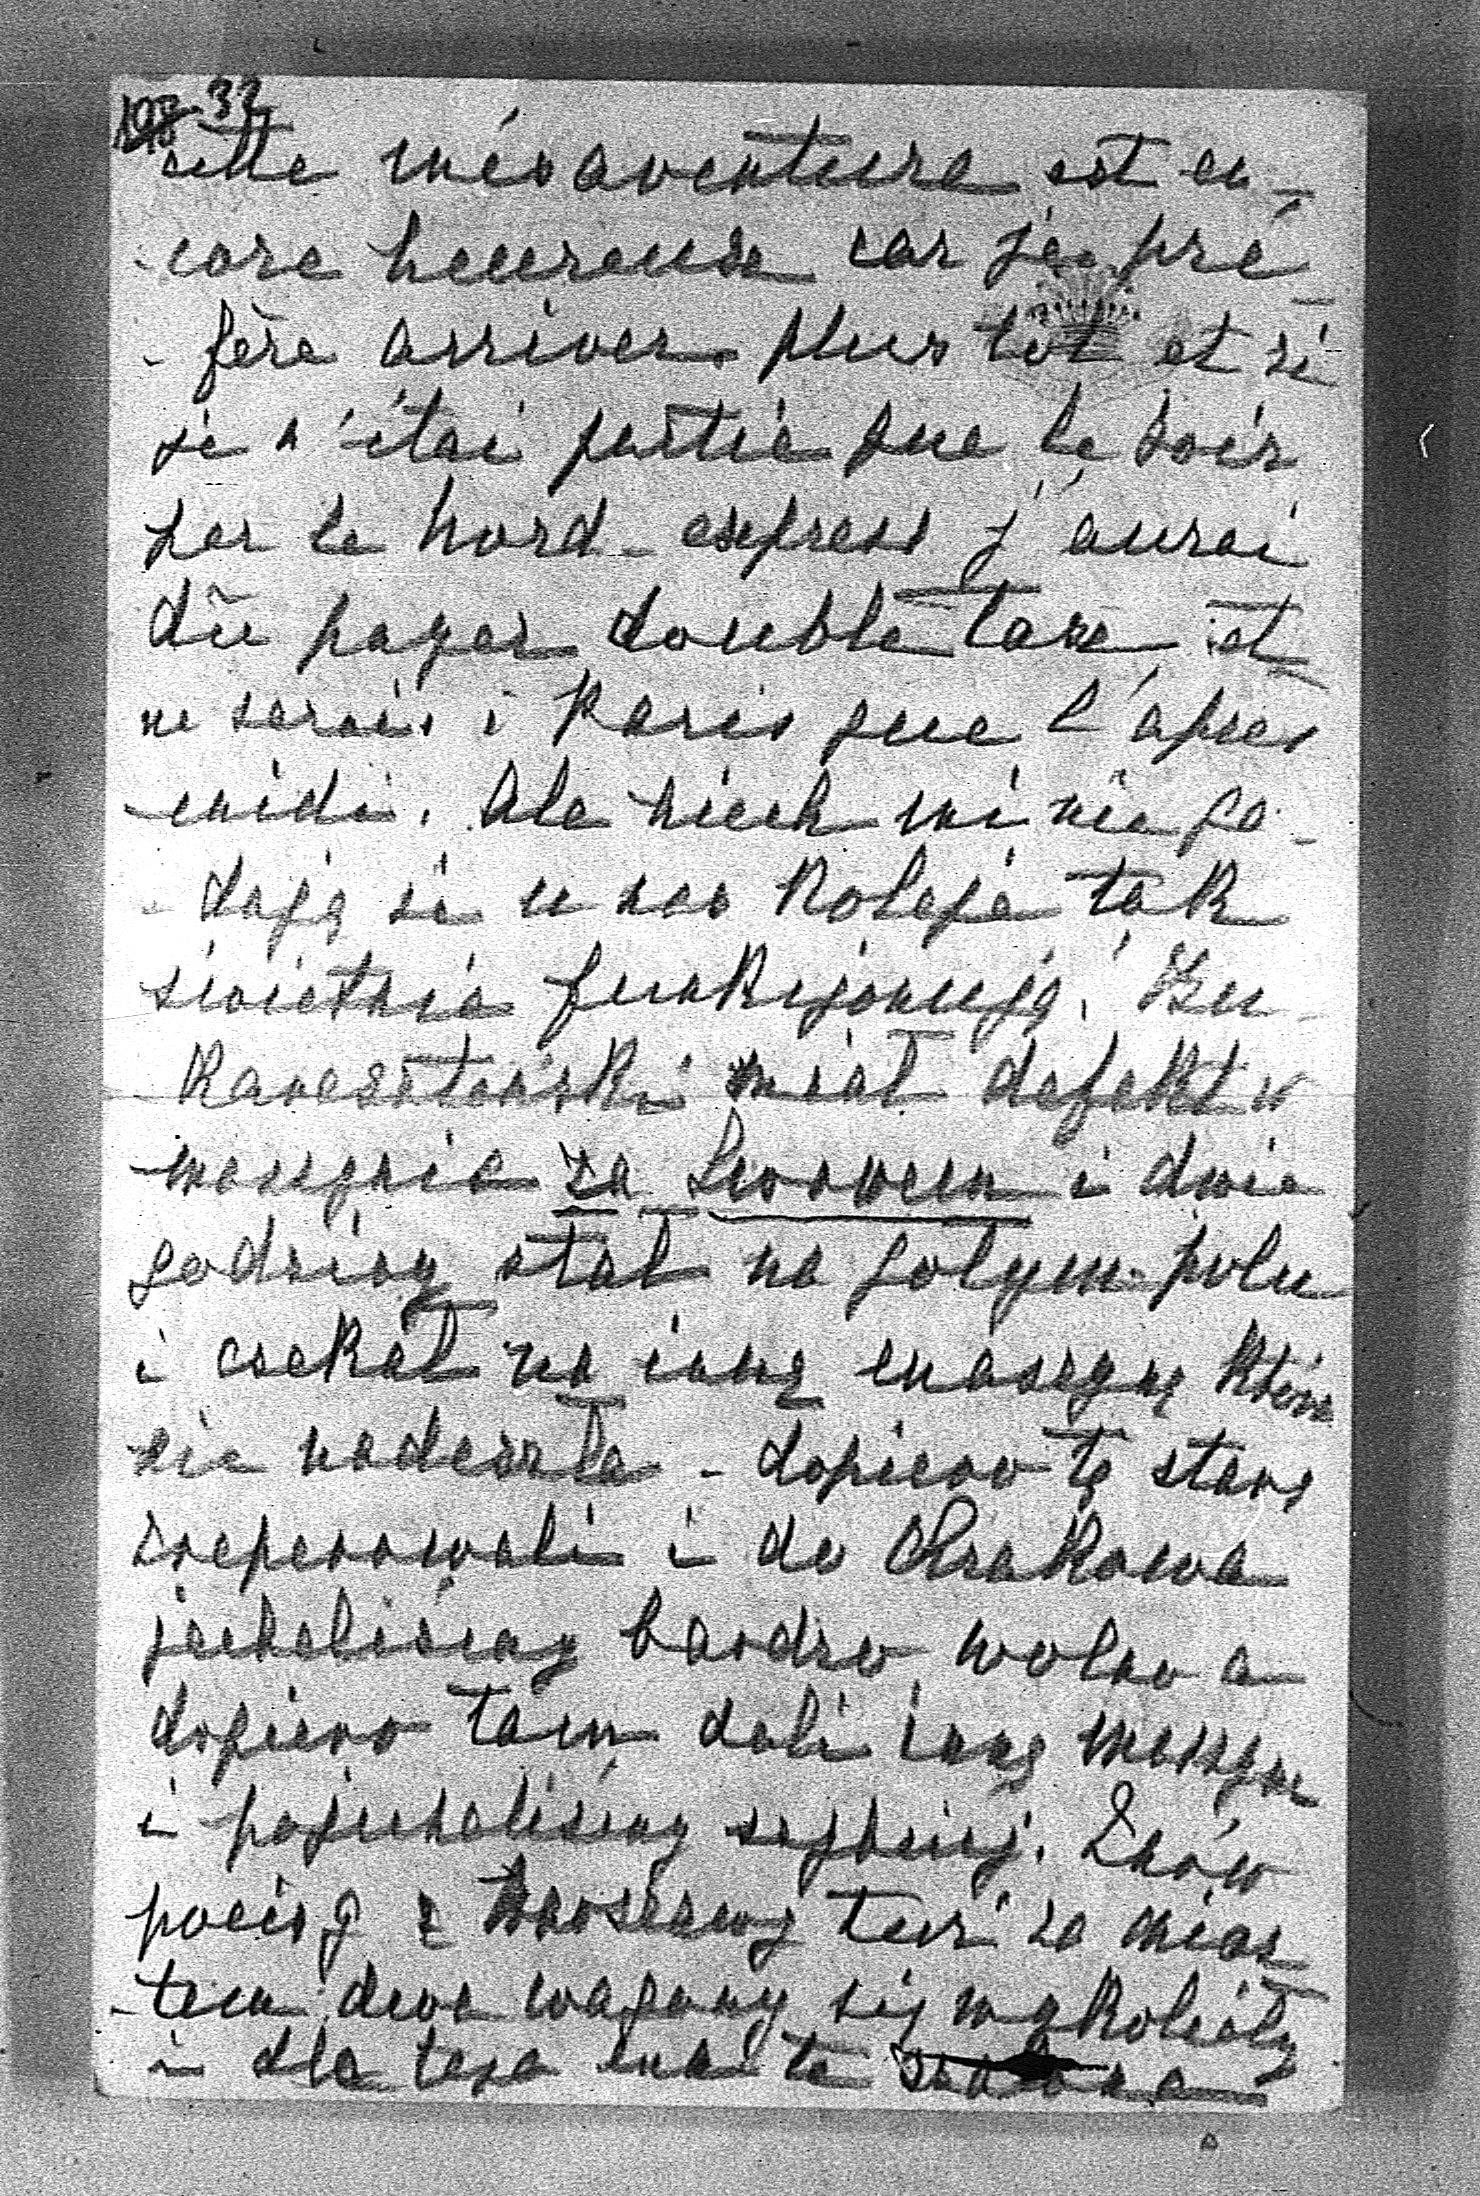 33
cette mésaventure est en-
-core heureuse car je pré-
-fère arriver plus tôt et si
je n'étai partie que le soir
par le Nord-express j'aurai
dû payer double taxe, et
ne serais à Paris que l'après
-midi. Ale niech mi nie ga-
-dają że u nas koleje tak
świetnie funkcjonują. Bu-
-karesztański miał defekt w
maszynie za Lwowem i dwie
godziny stał na gołym polu
i czekał na inną maszynę która
nie nadeszła - dopiero tę starą
zreperowali i do Krakowa
jechaliśmy bardzo wolno a
dopiero tam dali inną maszynę
i pojechaliśmy szybciej. Znów
pociąg z Warszawy tuż za mias-
-tem dwa wagony się wykoleiły
i dla tego ma te